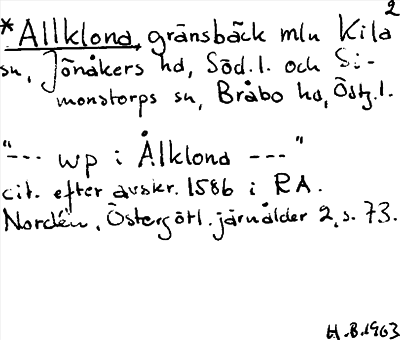 2
*Allklona, gränsbäck mln Kila
sn, Jönåkers hd, Söd.l. och Si-
monstorps sn, Bråbo hd, Östg.l.
"--- wp i Ålklona ---"
cit. efter avskr. 1586 i RA.
Nordén, Östergötl. järnålder 2, s. 73.
H.B.1963